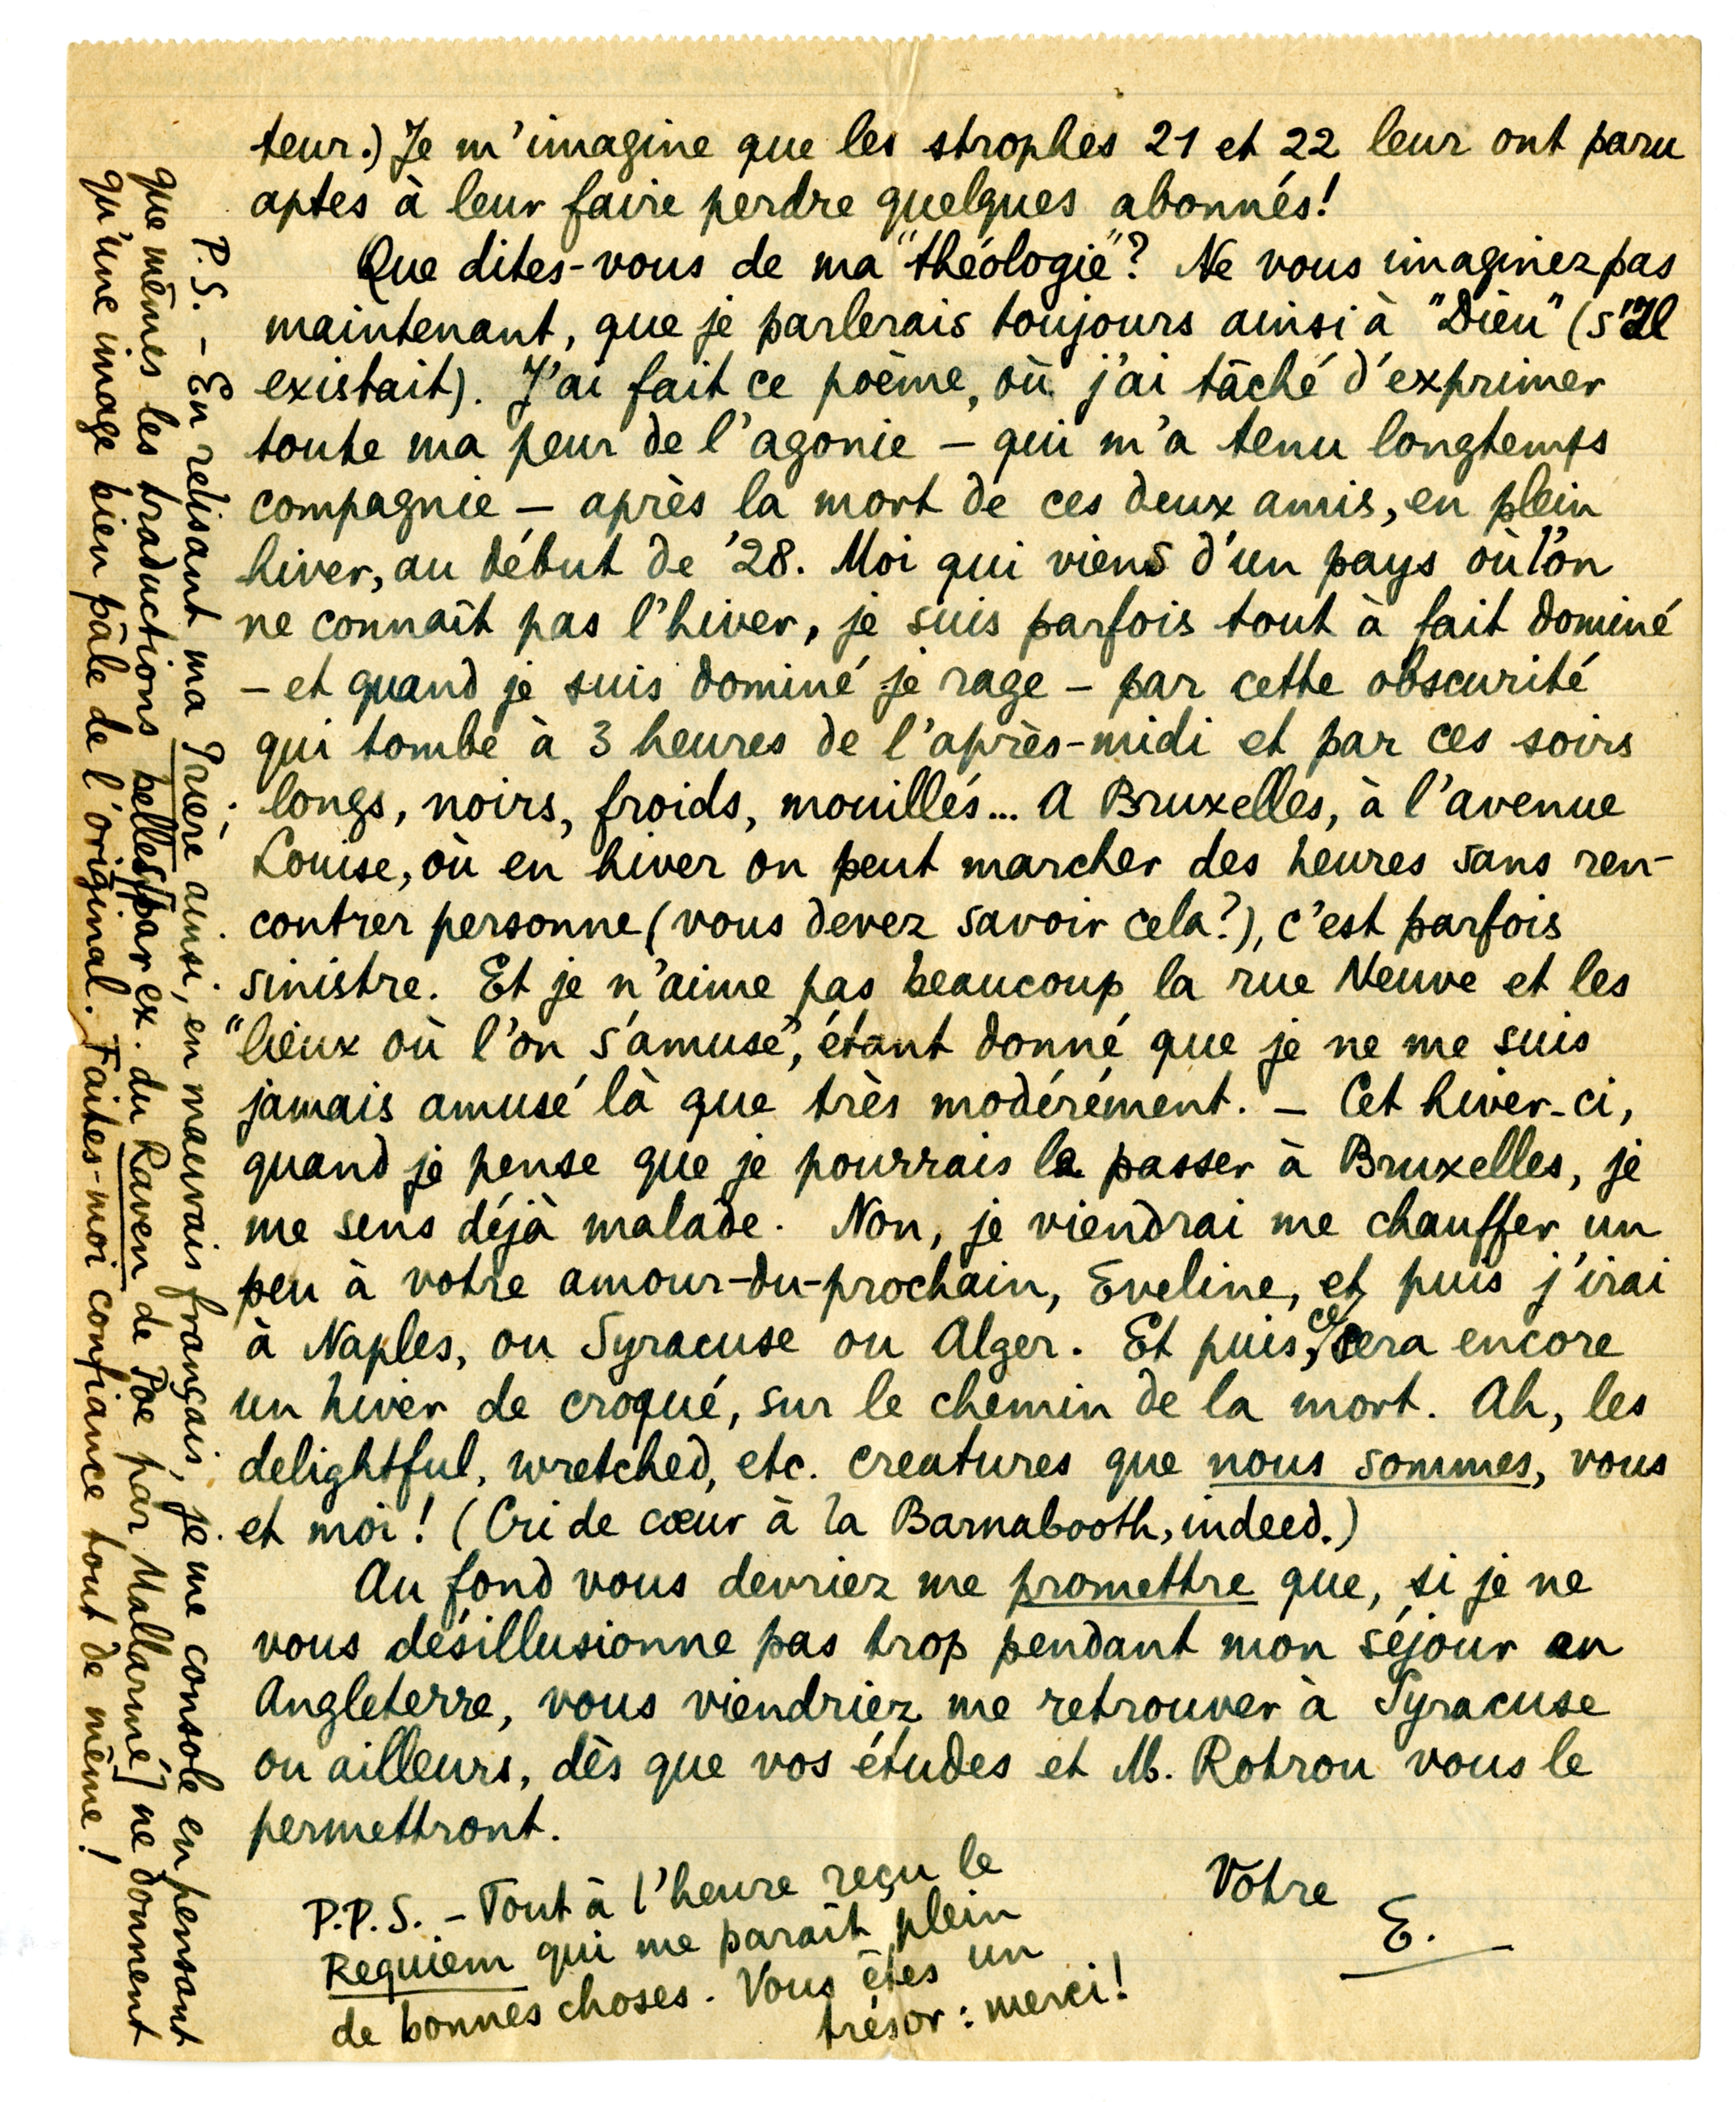 teur.) Je m'imagine que les strophes 21 et 22 leur ont paru
aptes à leur faire perdre quelques abonnés!
Que dites-vous de ma "théologie"? Ne vous imaginez pas
maintenant, que je parlerais toujours ainsi à "Dieu" (s'Il
existait). J'ai fait ce poème, où j'ai tâché d'exprimer
toute ma peur de l'agonie – qui m'a tenu longtemps
compagnie – après la mort de ces deux amis, en plein
hiver, au début de '28. Moi qui viens d'un pays où l'on
ne connaît pas l'hiver, je suis parfois tout à fait dominé
– et quand je suis dominé je rage – par cette obscurité
qui tombe à 3 heures de l'après-midi et par ces soirs
longs, noirs, froids, mouillés... A Bruxelles, à l'avenue
Louise, où en hiver on peut marcher des heures sans ren-
contrer personne (vous devez savoir cela?), c'est parfois
sinistre. Et je n'aime pas beaucoup la rue Neuve et les
"lieux où l'on s'amuse", étant donné que je ne me suis
jamais amusé là que très modérément. – Cet hiver-ci,
quand je pense que je pourrais le passer à Bruxelles, je
me sens déjà malade. Non, je viendrai me chauffer un
peu à votre amour-du-prochain, Eveline, et puis j'irai
à Naples, ou Syracuse ou Alger. Et puis, ce sera encore
un hiver de croqué, sur le chemin de la mort. Ah, les
delightful, wretched, etc. creatures que nous sommes, vous
et moi! (Cri de cœur à la Barnabooth, indeed.)
Au fond vous devriez me promettre que, si je ne
vous désillusionne pas trop pendant mon séjour en
Angleterre, vous viendriez me retrouver à Syracuse
ou ailleurs, dès que vos études et M. Rotrou vous le
permettront.
Votre
E.
P.P.S. – Tout à l'heure reçu le
Requiem qui me paraît plein
de bonnes choses. Vous êtes un
trésor: merci!
P.S. – En relisant ma Prière ainsi, en mauvais français, je me console en pensant
que mêmes les traductions belles [par ex. du Raven de Poe par Mallarmé] ne donnent
qu'une image bien pâle de l'original. Faites-moi confiance tout de même!